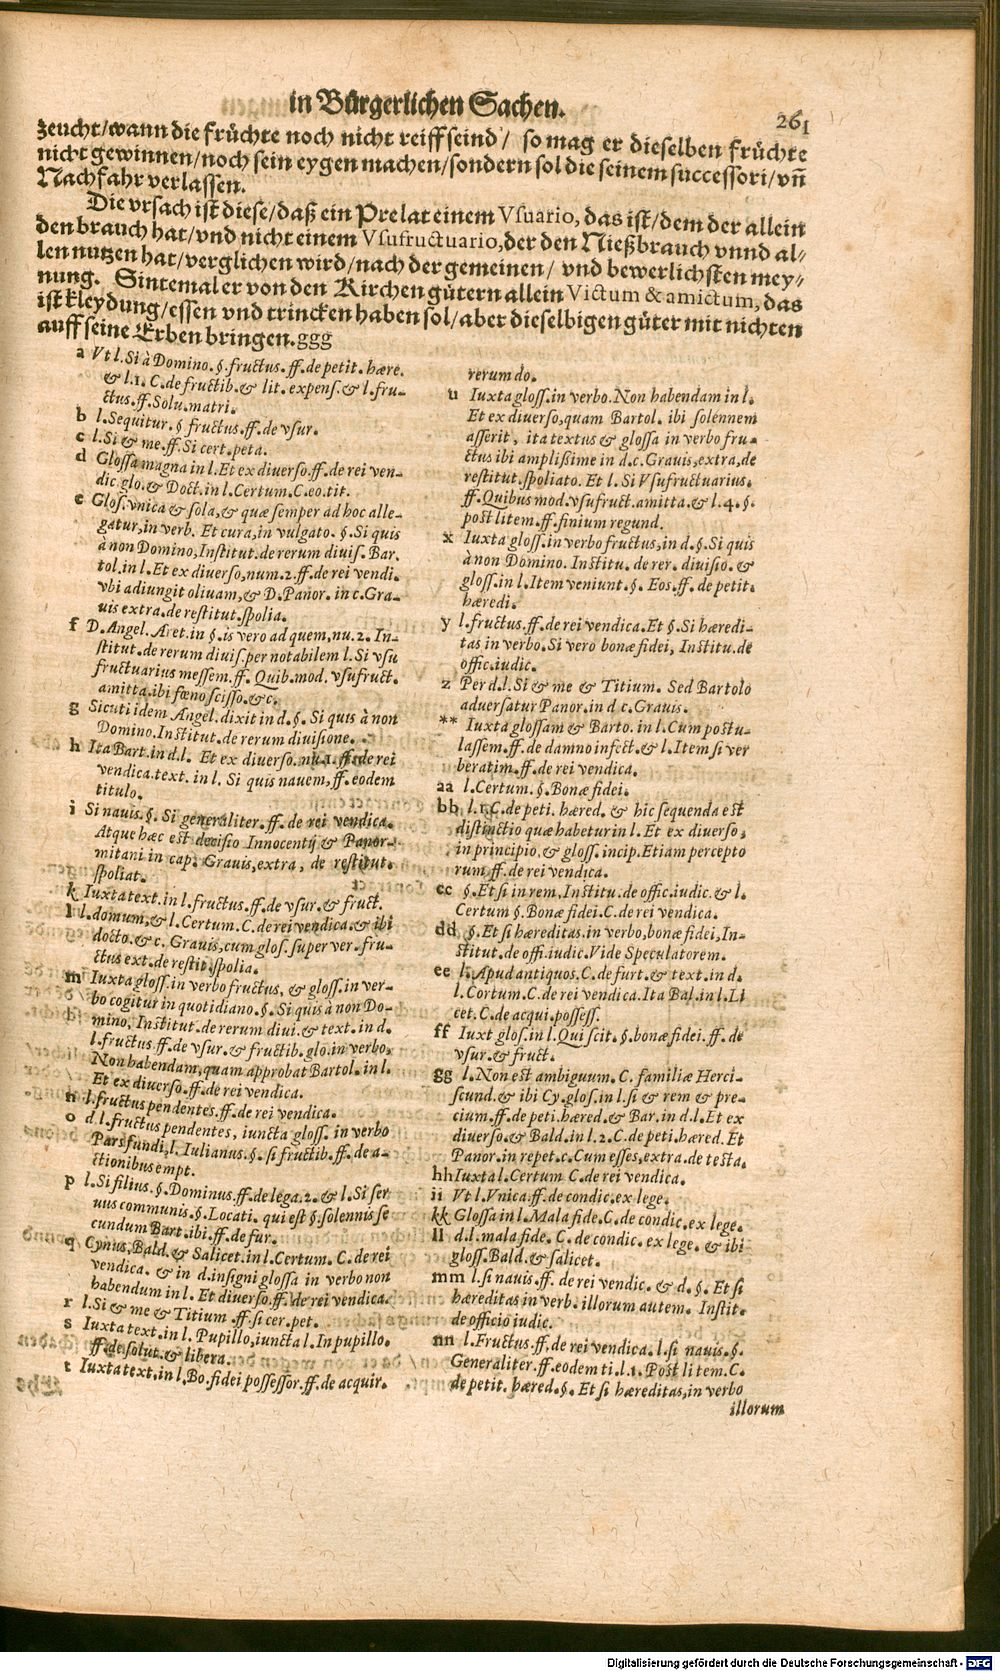 in Bürgerlichen Sachen.
261
zeucht/wann die früchte noch nicht reiff seind / so mag er dieselben früchte
nicht gewinnen/noch sein eygen machen/sondern sol die seinem successori/vñ
Nachfahr verlassen.
Die vrsach ist diese/daß ein Prelat einem Vsuario, das ist/dem der allein
den brauch hat/vnd nicht einem Vsufructuario, der den Nießbrauch vnnd al⸗
len nutzen hat/verglichen wird/nach der gemeinen / vnd bewerlichsten mey⸗
nung. Sintemal er von den Kirchen gütern allein Victum & amictum, das
ist kleydung/essen vnd trincken haben sol/aber dieselbigen güter mit nichten
auff seine Erben bringen.ggg
a Vt l. Si à Domino. §. fructus. ff. de petit. hære.
& l. 1. C. de fructib. & lit. expens. & l. fru-
ctus. ff. Solu. matri.
b l. Sequitur. § fructus. ff. de vsur.
c l. Si & me. ff. Si cert. peta.
d Glossa magna in l. Et ex diverso. ff. de rei ven-
dic. glo. & Doct. in l. Certum. C. eo. tit.
e Glos. vnica & sola, & quæ semper ad hoc alle-
gatur, in verb. Et cura, in vulgato. §. Si quis
à non Domino, Institut. de rerum divis. Bar.
tol. in l. Et ex diverso, num. 2. ff. de rei vendi.
vbi adiungit olivam, & D. Panor. in c. Gra-
uis extra. de restitut. spolia.
f D. Angel. Aret. in §. is vero ad quem, nu. 2. In-
stitut. de rerum divis. per notabilem l. Si vsu
fructuarius messem. ff. Quib. mod. vsufruct.
amitta. ibi fœno scisso. &c.
g Sicuti idem Angel. dixit in d. §. Si quis à non
Domino. Institut. de rerum divisione.
h Ita Bart. in d. l. Et ex diverso. nu. 1. ff. de rei
vendica. text. in l. Si quis nauem, ff. eodem
titulo.
i Si navis. §. Si generaliter. ff. de rei vendica.
Atque hæc est decisio Innocentij & Panor-
mitani in cap. Grauis, extra, de restitut.
spoliat.
k Iuxta text. in l. fructus. ff. de vsur. & fruct.
l l. domum, & l. Certum. C. de rei vendica. & ibi
docto. & c. Grauis, cum glos. super ver. fru-
ctus ext. de restit. spolia.
m Iuxta gloss. in verbo fructus, & gloss. in ver-
bo cogitur in quotidiano. §. Si quis à non Do-
mino, Institut. de rerum divi. & text. in d.
l. fructus. ff. de vsur. & fructib. glo. in verbo,
Non habendam, quam approbat Bartol. in l.
Et ex diverso. ff. de rei vendica.
n l. fructus pendentes. ff. de rei vendica.
o d. l. fructus pendentes, iuncta gloss. in verbo
Pars fundi, l. Iulianus. §. si fructib. ff. de a-
ctionibus empt.
p l. Si filius. §. Dominus. ff. de lega. 2. & l. Si ser
uus communis. §. Locati. qui est §. solennis se
cundum Bart. ibi. ff. de fur.
q Cynus, Bald. & Salicet. in l. Certum. C. de rei
vendica. & in d. insigni glossa in verbo non
habendum in l. Et diverso. ff. de rei vendica.
r l. Si & me & Titium. ff. si cer. pet.
s Iuxta text. in l. Pupillo, iuncta l. In pupillo.
ff. de solut. & libera.
t Iuxta text. in l. Bo. fidei possessor. ff. de acquir.
rerum do.
u Iuxta gloss. in verbo. Non habendam in l.
Et ex diverso, quam Bartol. ibi solennem
asserit, ita textus & glossa in verbo fru-
ctus ibi amplißime in d. c. Grauis, extra, de
restitut. spoliato. Et l. Si Vsufructuarius.
ff. Quibus mod. vsufruct. amitta. & l. 4. §.
post litem. ff. finium regund.
x Iuxta gloss. in verbo fructus, in d. §. Si quis
à non Domino. Institu. de rer. divisio. &
gloss. in l. Item veniunt. §. Eos. ff. de petit.
hæredi.
y l. fructus. ff. de rei vendica. Et §. Si hæredi-
tas in verbo. Si vero bonæ fidei, Institu. de
offic. iudic.
z Per d. l. Si & me & Titium. Sed Bartolo
aduersatur Panor. in d c. Grauis.
** Iuxta glossam & Barto. in l. Cum postu-
lassem. ff. de damno infect. & l. Item si ver
beratim. ff. de rei vendica.
aa l. Certum. §. Bonæ fidei.
bb l. 1. C. de peti. hæred. & hic sequenda est
distinctio quæ habetur in l. Et ex diverso,
in principio, & gloss. incip. Etiam percepto
rum. ff. de rei vendica.
cc §. Et si in rem, Institu. de offic. iudic. & l.
Certum §. Bonæ fidei. C. de rei vendica.
dd §. Et si hæreditas. in verbo, bonæ fidei, In-
stitut. de offi. iudic. Vide Speculatorem.
ee l. Apud antiquos. C. de furt. & text. in d.
l. Cortum. C. de rei vendica. Ita Bal. in l. Li
cet. C. de acqui. possess.
ff Iuxt glos. in l. Qui scit. §. bonæ fidei. ff. de
vsur. & fruct.
gg l. Non est ambiguum. C. familiæ Herci-
scund. & ibi Cy. glos. in l. si & rem & pre-
cium. ff. de peti. hæred. & Bar. in d. l. Et ex
diverso. & Bald. in l. 2. C. de peti. hæred. Et
Panor. in repet. c. Cum esses, extra. de testa.
hh Iuxta l. Certum C. de rei vendica.
ii Vt l. Vnica. ff. de condic. ex lege.
kk Glossa in l. Mala fide. C. de condic. ex lege.
ll d. l. mala fide. C. de condic. ex lege. & ibi
gloss. Bald. & salicet.
mm l. si nauis. ff. de rei vendic. & d. §. Et si
hæreditas in verb. illorum autem. Instit.
de officio iudic.
nn l. Fructus. ff. de rei vendica. l. si nauis. §.
Generaliter. ff. eodem ti. l. 1. Post litem. C.
de petit. hæred. §. Et si hæreditas, in verbo
illorum
Digitalisierung gefördert durch die Deutsche Forschungsgemeinschaft - DFG